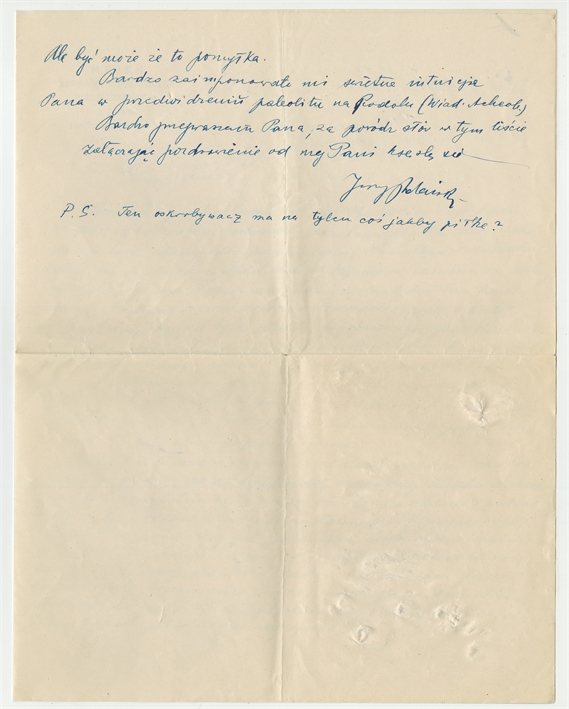 Ale być może że to pomyłka.
Bardzo zaimponowała mi świetna intuicja
Pana w przewidzeniu paleolitu na Podolu (Wiad. Archeol.)
Bardzo przepraszam Pana, za powódź słów w tym liście
załączając pozdrowienie od mej Pani kreślę się
Jerzy
P.S. Ten oskrobywacz ma na tylcu coś jakby piłkę?